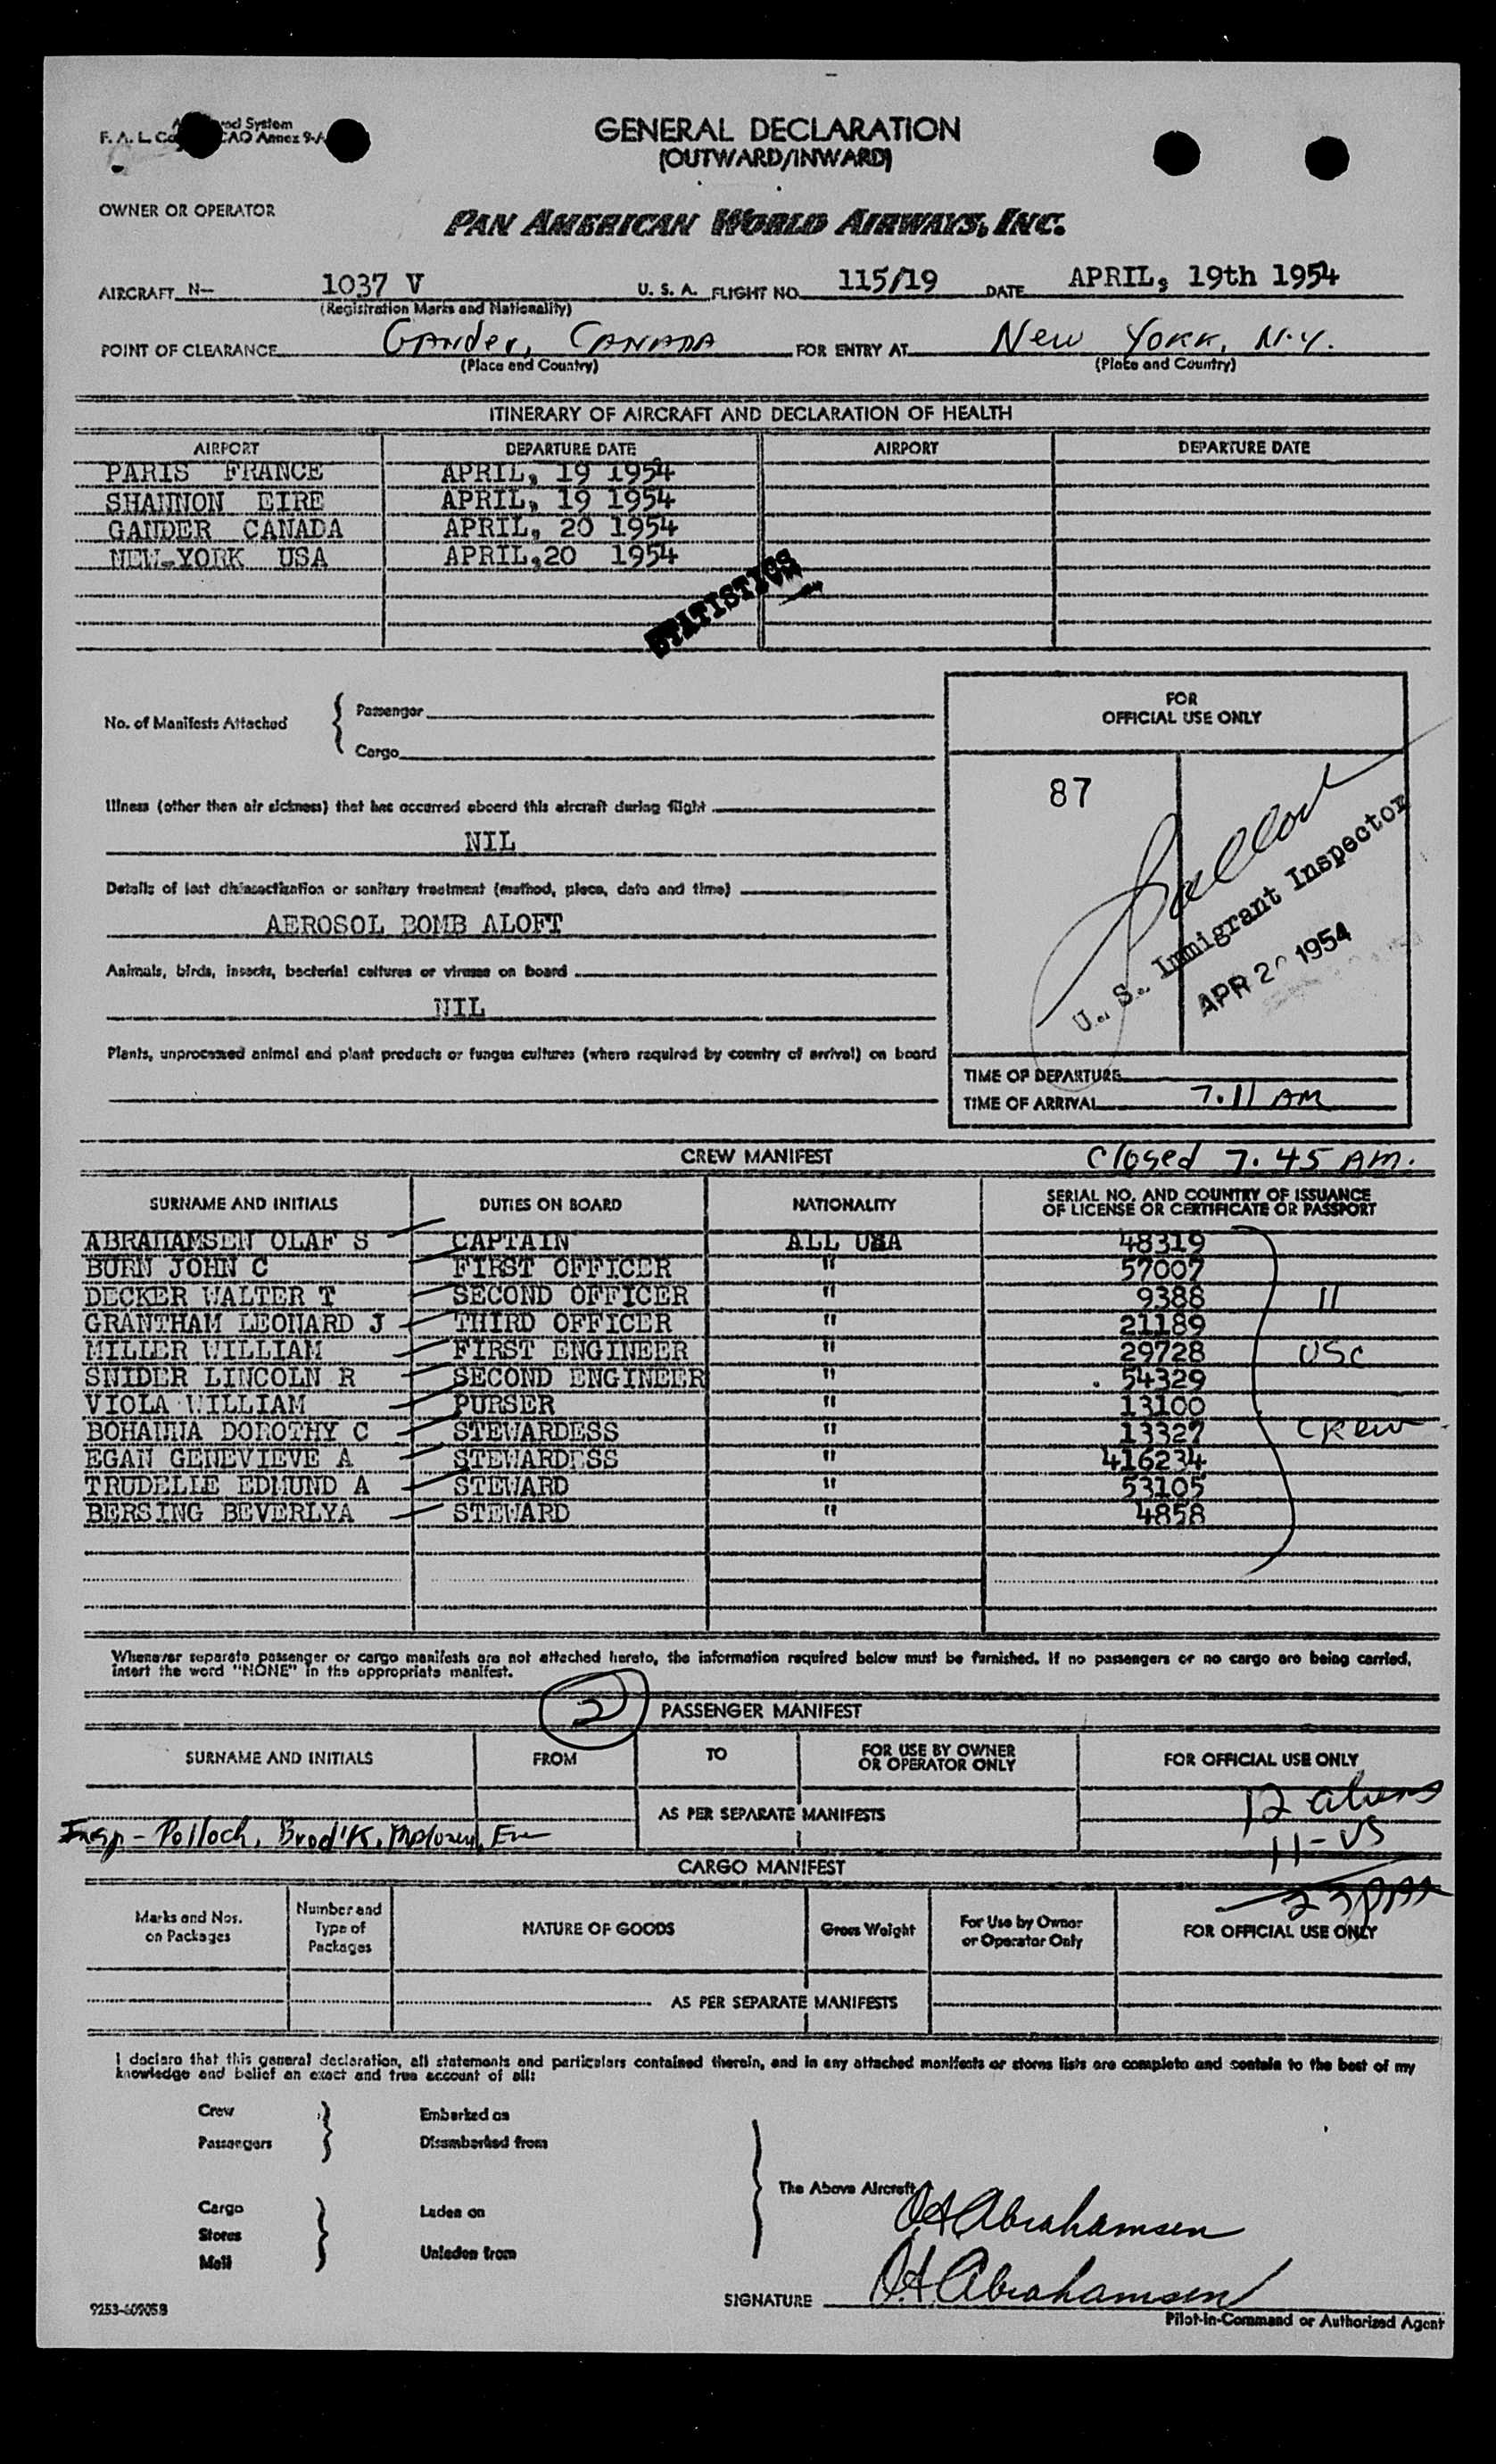 GENERAL DECLARATION
(OUTWARD/INWARD)
OWNER OR OPERATOR
PAN AMERICAN WORLD AIRWAYS, INC.
AIRCRAFT N- 1037 V U. S. A. FLIGHT NO. 115/19 DATE APRIL, 19th 1954
(Registration Marks and Nationality)
POINT OF CLEARANCE Gander, CANADA FOR ENTRY AT New York, N.Y.
(Place and Country) (Place and Country)
ITINERARY OF AIRCRAFT AND DECLARATION OF HEALTH
AIRPORT DEPARTURE DATE AIRPORT DEPARTURE DATE
PARIS FRANCE APRIL, 19 1954
SHANNON EIRE APRIL, 19 1954
GANDER CANADA APRIL, 20 1954
NEW-YORK USA APRIL,20 1954
STATISTICS
No. of Manifests Attached { Passenger
Cargo
FOR
OFFICIAL USE ONLY
87
U. S. Immigrant Inspector
APR 20 1954
Illness (other then air sickness) that has occurred aboard this aircraft during flight
NIL
Details of last disinsectization or sanitary treatment (method, place, date and time)
AEROSOL BOMB ALOFT
Animals, birds, insects, bacterial cultures or viruses on board
NIL
Plants, unprocessed animal and plant products or fungus cultures (where required by country of arrival) on board
TIME OF DEPARTURE
TIME OF ARRIVAL 7.11 AM
CREW MANIFEST Closed 7.45 AM.
SURNAME AND INITIALS DUTIES ON BOARD NATIONALITY SERIAL NO. AND COUNTRY OF ISSUANCE
OF LICENSE OR CERTIFICATE OR PASSPORT
ABRAHAMSEN OLAF S CAPTAIN ALL USA 48319
BURN JOHN C FIRST OFFICER " 57007
DECKER WALTER T SECOND OFFICER " 9388 11
GRANTHAM LEONARD J THIRD OFFICER " 21189
MILLER WILLIAM FIRST ENGINEER " 29728 USC
SNIDER LINCOLN R SECOND ENGINEER " 54329
VIOLA WILLIAM PURSER " 13100
BOHANNA DOROTHY C STEWARDESS " 13327 Crew
EGAN GENEVIEVE A STEWARDESS " 416234
TRUDELLE EDMUND A STEWARD " 53105
BERSING BEVERLYA STEWARD " 4858
Whenever separate passenger or cargo manifests are not attached hereto, the information required below must be furnished. If no passengers or no cargo are being carried,
insert the word "NONE" in the appropriate manifest.
2 PASSENGER MANIFEST
SURNAME AND INITIALS FROM TO FOR USE BY OWNER
OR OPERATOR ONLY FOR OFFICIAL USE ONLY
12 aliens
AS PER SEPARATE MANIFESTS
11-US
Insp - Polloch, Brod'k,
CARGO MANIFEST
23
Marks and Nos.
on Packages Number and
Type of
Packages NATURE OF GOODS Gross Weight For Use by Owner
or Operator Only FOR OFFICIAL USE ONLY
AS PER SEPARATE MANIFESTS
I declare that this general declaration, all statements and particulars contained therein, and in any attached manifests or stores lists are complete and contain to the best of my
knowledge and belief an exact and true account of all:
Crew
Passengers } Embarked on
Disembarked from
The Above Aircraft
Cargo
Stores
Mail } Laden on
Unladen from
O.S. Abrahamsen
SIGNATURE O.S. Abrahamsen
Pilot-in-Command or Authorized Agent